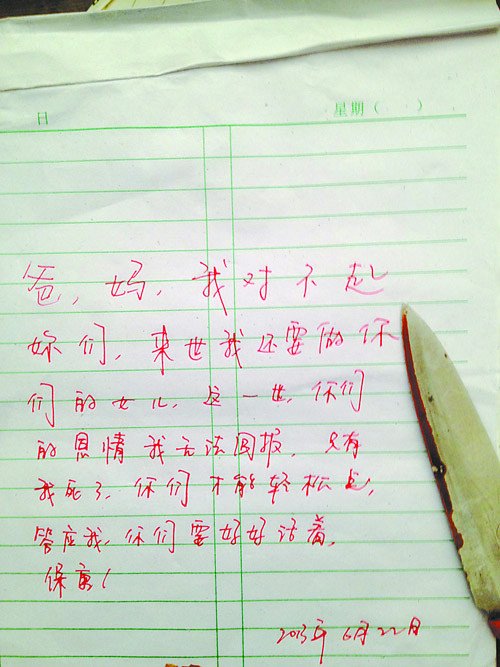 日 星期( )
爸，妈，我对不起
你们，来世我还要做你
们的女儿，这一世，你们
的恩情我无法回报，只有
我死了，你们才能轻松点，
答应我，你们要好好活着，
保重！
2013年6月22日